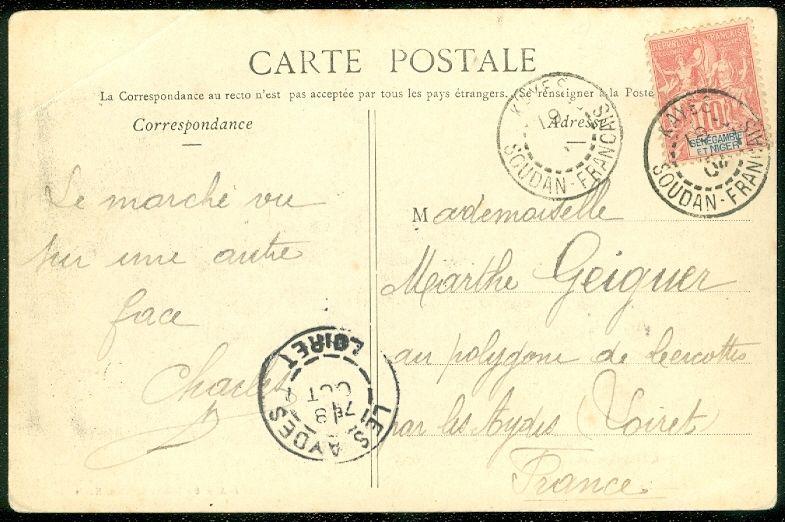 CARTE POSTALE
La Correspondance au recto n'est pas acceptée par tous les pays étrangers. (Se renseigner à la Poste
Correspondance
Adresse
RÉPUBLIQUE FRANÇAISE
10
SÉNÉGAMBIE
ET NIGER
KAYES
19
11
SOUDAN-FRANÇAIS
KAYES
19
04
SOUDAN-FRANÇAIS
Le marché vu
sur une autre
face
Charles
Mademoiselle
Marthe Geiguer
au polygone de Cercottes
par les Aydes (Loiret)
France
LES AYDES
LOIRET
7E
18
OCT